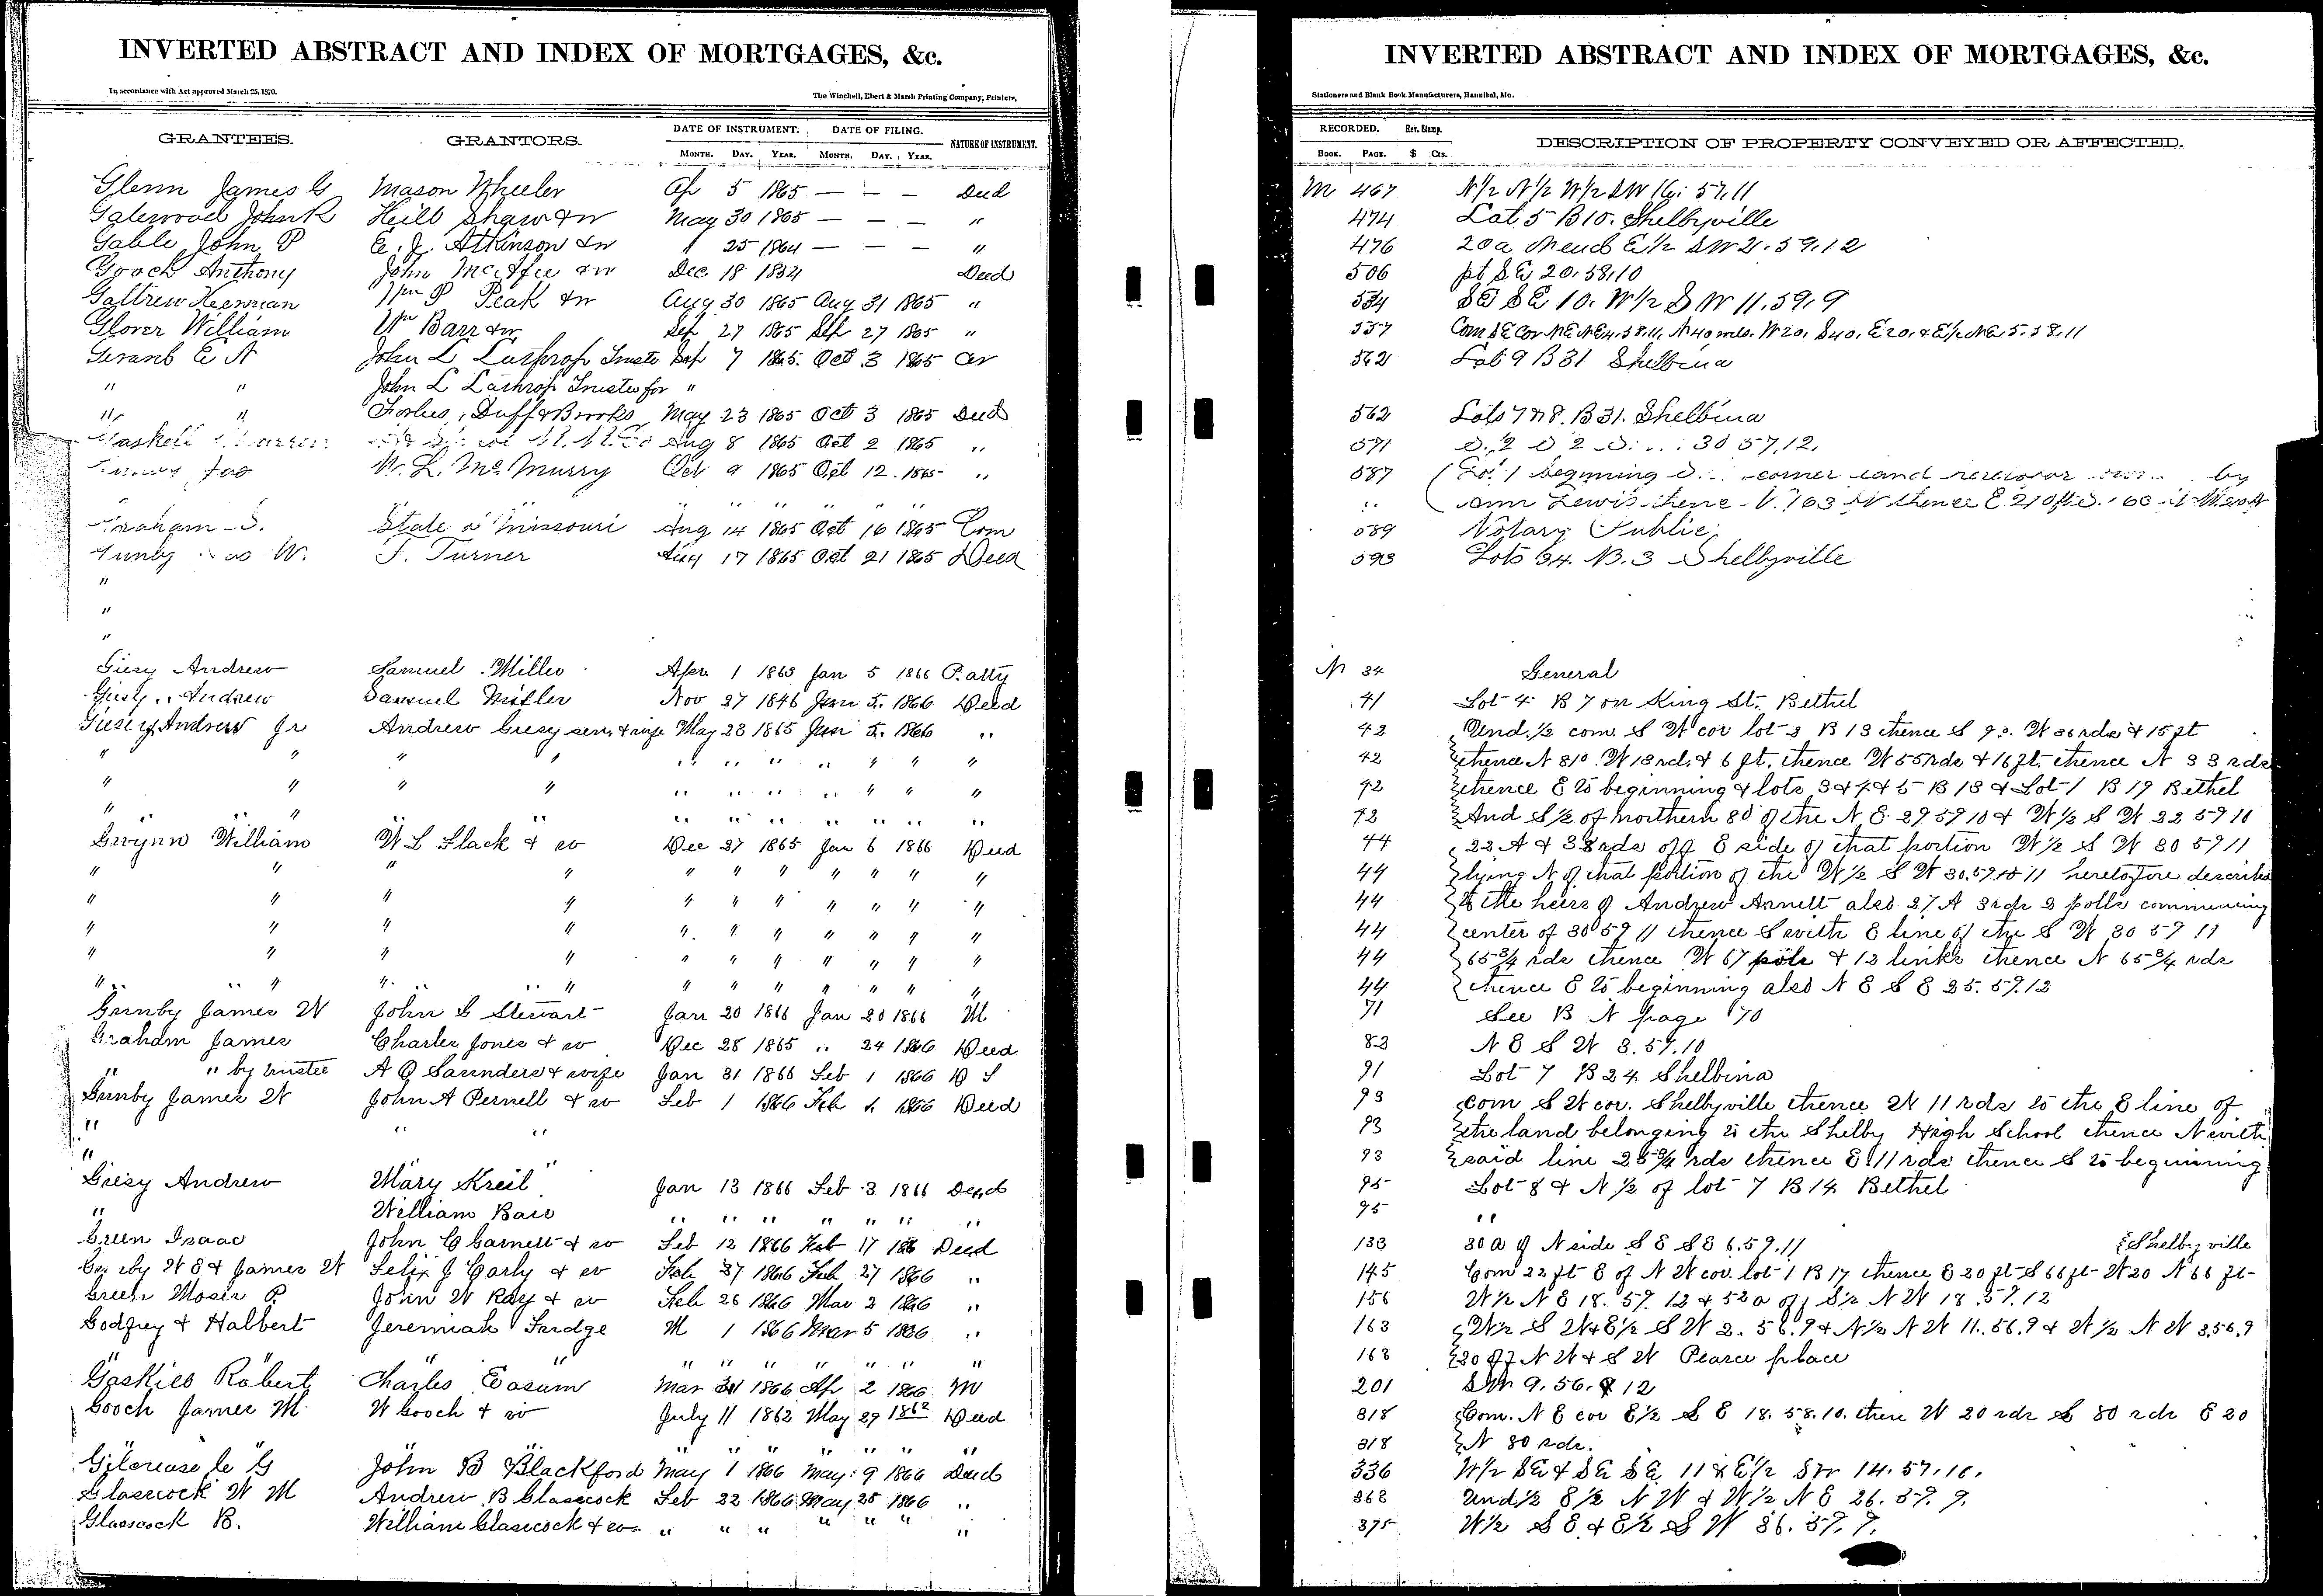 INVERTED ABSTRACT AND INDEX OF MORTGAGES, &c.
In accordance with Act approved March 25, 1870.
The Winchell, Ebert & Marsh Printing Company, Printers,
GRANTEES. GRANTORS. DATE OF INSTRUMENT. DATE OF FILING. NATURE OF INSTRUMENT.
MONTH. DAY. YEAR. MONTH. DAY. YEAR.
Glenn James G Mason Wheeler Ap 5 1865 — — — Deed
Gatewood John R Hill Shaw &w May 30 1865 — — — "
Gable John P E. J. Atkinson &w " 25 1864 — — — "
Gooch Anthony John McAfee &w Dec 18 1834 Deed
Wm P Peak &w Aug 30 1865 Aug 31 1865 "
Glover William Wm Barr &w Sep 27 1865 Sep 27 1865 "
Gerand E A John L Lathrop Trustee Sep 7 1865. Oct 3 1865 Cer
" " John L Lathrop Trustee for "
" " Forbes, Duff & Brooks May 23 1865 Oct 3 1865 Deed
Gaskell Warren Aug 8 1865 Oct 2 1865 "
W. L. McMurry Oct 9 1865 Oct 12. 1865 "
" " " " " "
Graham S. State of Missouri Aug 14 1865 Oct 16 1865 Com
Gunby W. T. Turner Aug 17 1865 Oct 21 1865 Deed
"
"
"
Giesy Andrew Samuel Miller Apr 1 1863 Jan 5 1866 P. atty
Giesy Andrew Samuel Miller Nov 27 1846 Jan 5. 1866 Deed
Giesy Andrew Jr Andrew Giesy sen. & wife May 23 1865 Jan 5. 1866 "
" " " " " " " " " " "
" " " " " " " " " " "
" " " " " " " " " " "
Gwynn William W L Slack & w Dec 27 1865 Jan 6 1866 Deed
" " " " " " " " " " "
" " " " " " " " " " "
" " " " " " " " " " "
" " " " " " " " " " "
" " " " " " " " " " "
Gunby James W John G Stewart Jan 20 1866 Jan 20 1866 M
Graham James Charles Jones & w Dec 28 1865 " 24 1866 Deed
" " by trustee A Q Saunders & wife Jan 31 1866 Feb 1 1866 D T
Gunby James W John A Pernell & w Feb 1 1866 Feb 1866 Deed
" " "
" "
Giesy Andrew Mary Kreil Jan 13 1866 Feb 3 1866 Deed
" William Bair " " " " " " "
Green Isaac John C Garnett & w Feb 12 1866 Feb 17 186 Deed
Gunby W E & James W Felix J Carly & w Feb 27 1866 Feb 27 1866 "
Green Moses P John W Ray & w Feb 26 1866 Mar 2 1866 "
Godfrey & Halbert Jeremiah Fudge M 1 1866 Mar 5 1866 "
" " " " " " " " " " "
Gaskies Robert Charles Easum Mar 31 1866 Ap 2 1866 M
Gooch James M W Gooch & w July 11 1862 May 29 1862 Deed
" " " " " " " " " " "
Gilcrease C G John B Blackford May 1 1866 May 9 1866 Deed
Glasscock W M Andrew B Glasscock Feb 22 1866 May 25 1866 "
Glasscock B. William Glasscock & w " " " " " " "
INVERTED ABSTRACT AND INDEX OF MORTGAGES, &c.
Stationers and Blank Book Manufacturers, Hannibal, Mo.
RECORDED. Rev. Stamp. DESCRIPTION OF PROPERTY CONVEYED OR AFFECTED.
BOOK. PAGE. $ Cts.
M 467 N½ N½ W½ SW 16: 57.11
474 Lot 5 B 10. Shelbyville
476 20a N end E½ SW 21. 59.12
506 pt SE 20.58.10
534 SE SE 10. W½ SW 11.59.9
537 Com SE Cor NE NE 4.58.11, N 40 rods. W 20. S 40. E 20. & E½ NE 5.58.11
562 Lot 9 B 31 Shelbina
562 Lots 7 & 8. B 31. Shelbina
571 30 57.12.
587 beginning corner land by
" Ann Lewis thence thence E 210 ft
589 Notary Public
593 Lots 34. B. 3 Shelbyville
N 34 General
41 Lot 4 B 7 on King St. Bethel
42 Und. ½ com. S W cor lot 3 B 13 thence S 9°. W 36 rds & 15 ft
42 thence N 81° W 13 rds & 6 ft. thence W 55 rds & 16 ft. thence N 33 rds
42 thence E to beginning & lots 3 & 4 & 5 B 13 & Lot 1 B 19 Bethel
42 And S½ of northern 80 of the N E 29 59 10 & W½ S W 22 59 10
44 22 A & 38 rds off E side of that portion W½ S W 30 57 11
44 lying N of that portion of the W½ S W 30.57.11 heretofore described
44 to the heirs of Andrew Arnett also 27 A 3 rds 3 polls commencing
44 center of 30 57 11 thence S with E line of the S W 30 57 11
44 65¾ rds thence W 67 pole & 12 links thence N 65¾ rds
44 thence E to beginning also N E S E 25. 57.12
71 See B N page 70
83 N E S W 3.57.10
91 Lot 7 B 24 Shelbina
93 com S W cor. Shelbyville thence W 11 rds to the E line of
93 the land belonging to the Shelby High School thence N with
93 said line 25¾ rds thence E 11 rds thence S to beginning
95 Lot 8 & N ½ of lot 7 B 14 Bethel
95 "
133 30 a of N side S E S E 6.59.11 Shelbyville
145 Com 22 ft E of N W cor. lot 1 B 17 thence E 20 ft S 66 ft W 20 N 66 ft
156 W½ N E 18. 57. 12 & 52 a of S½ N W 18. 57.12
163 W½ S W & E½ S W 2. 56.9 & N½ N W 11. 56.9 & W½ N W 3.56.9
163 20 off N W & S W Pearce place
201 SW 9. 56. 12
318 Com. N E cor E½ S E 18. 58.10. thence W 20 rds S 80 rds E 20
318 N 80 rds.
336 W½ SE & SE SE 11 & E½ SW 14. 57.16.
362 Und ½ E½ N W & W½ N E 26. 57. 9.
375 W½ S E & E½ S W 36. 57. 9.